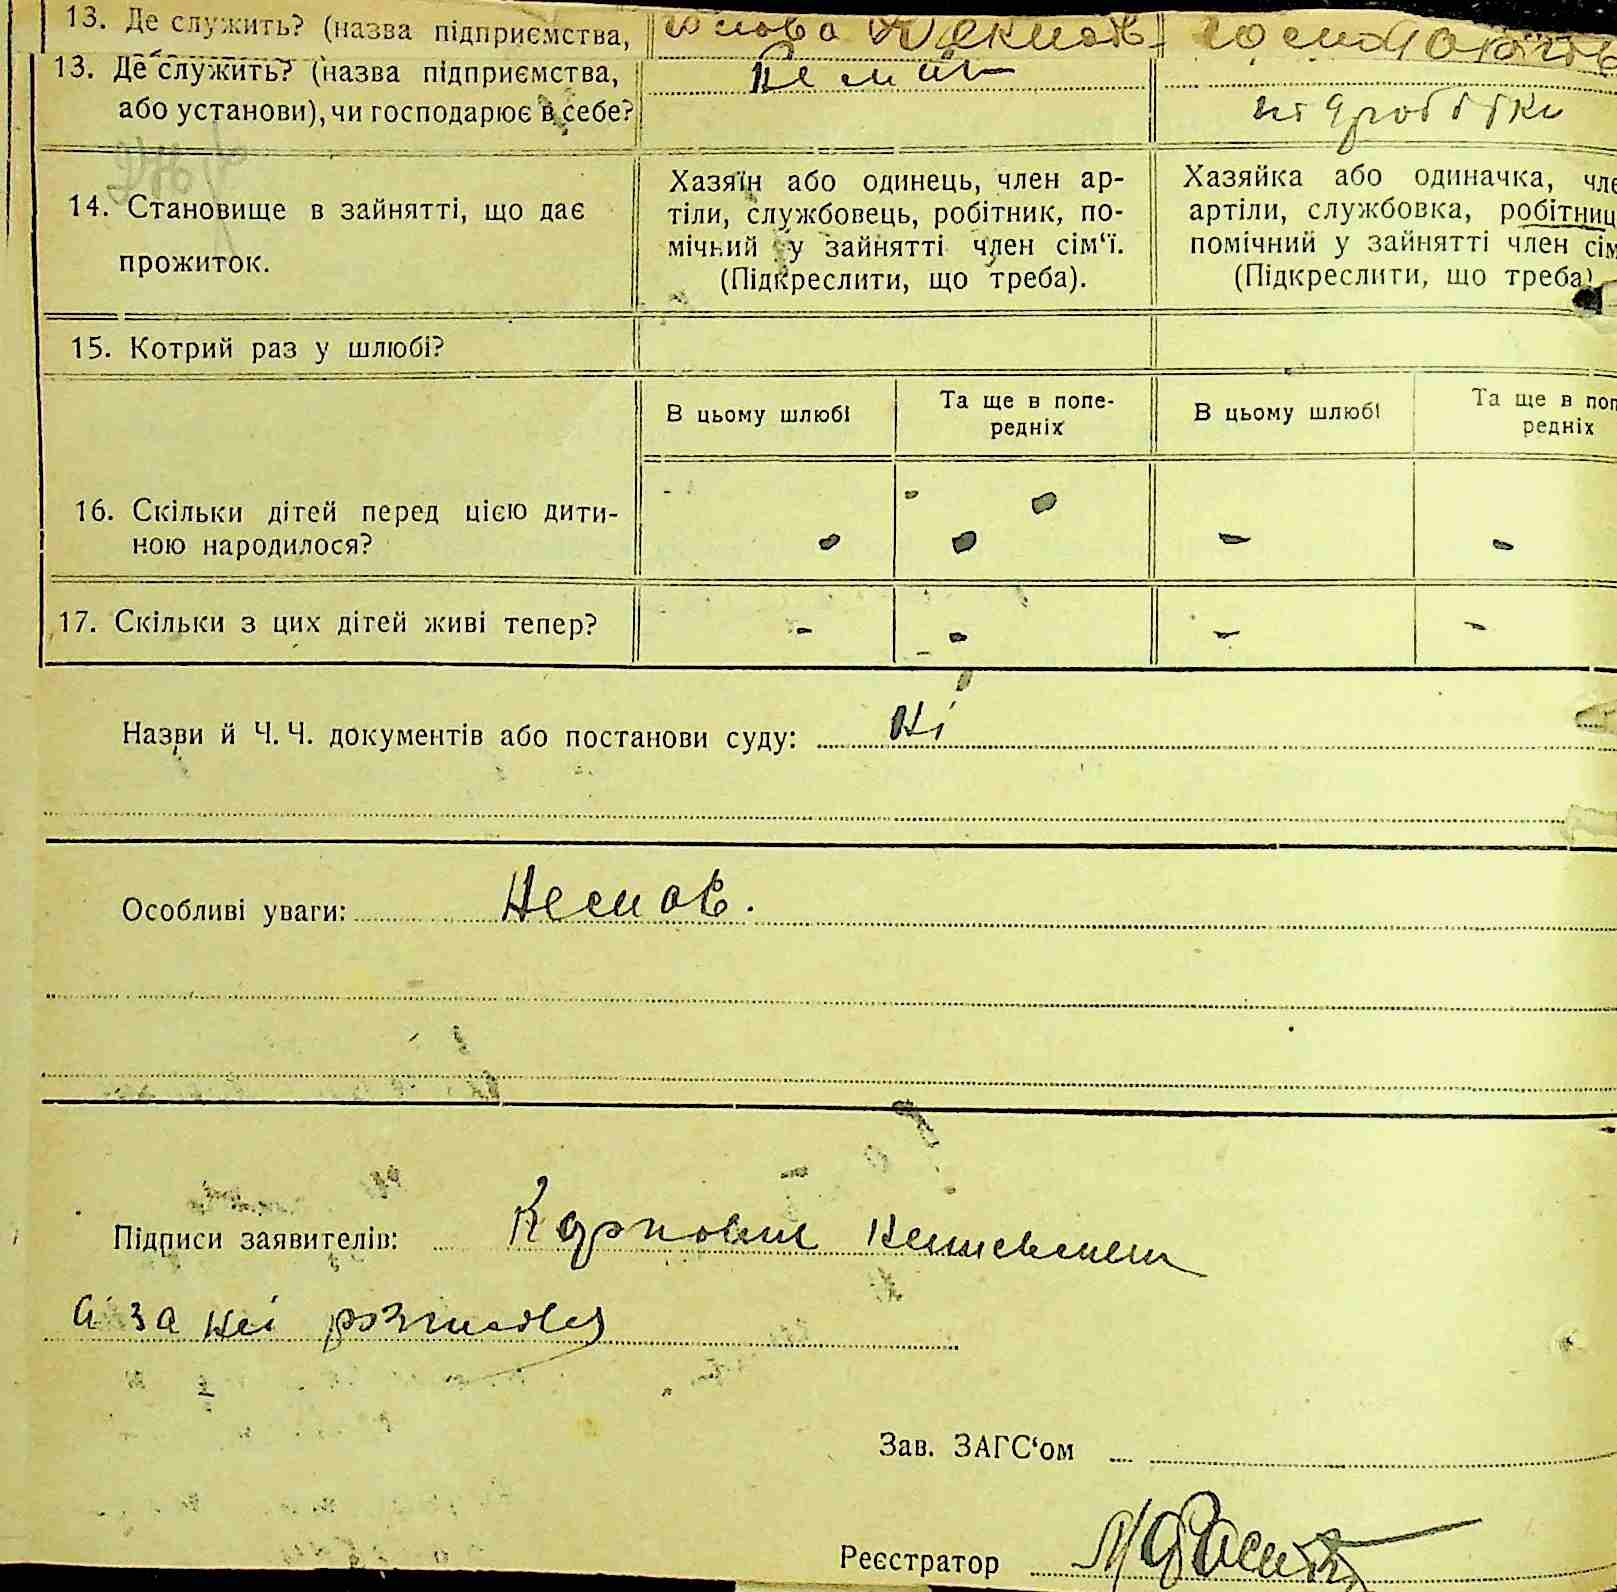 13. Де служить? (назва підприємства,
13. Де служить? (назва підприємства,
або установи), чи господарює в себе?
14. Становище в зайнятті, що дає
прожиток.
Хазяїн або одинець, член ар-
тіли, службовець, робітник, по-
мічний у зайнятті член сім‘ї.
(Підкреслити, що треба).
Хазяйка або одиначка, чле
артіли, службовка, робітниц
помічний у зайнятті член сім
(Підкреслити, що треба)
15. Котрий раз у шлюбі?
В цьому шлюбі
Та ще в попе-
редніх
В цьому шлюбі
Та ще в поп
редніх
16. Скільки дітей перед цією дити-
ною народилося?
- - - -
17. Скільки з цих дітей живі тепер?
- - - -
Назви й Ч. Ч. документів або постанови суду: Ні
Особливі уваги:
Підписи заявителів:
й за неї
Зав. ЗАГС‘ом
Реєстратор